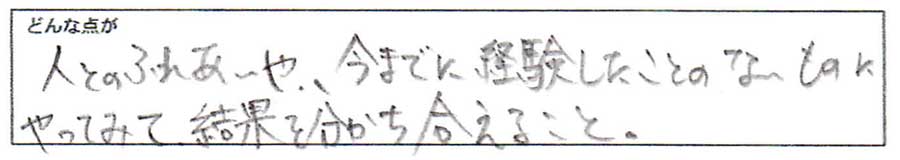 どんな点が
人とのふれあいや、今までに経験したことのないものに
やってみて、結果を分かち合えること。